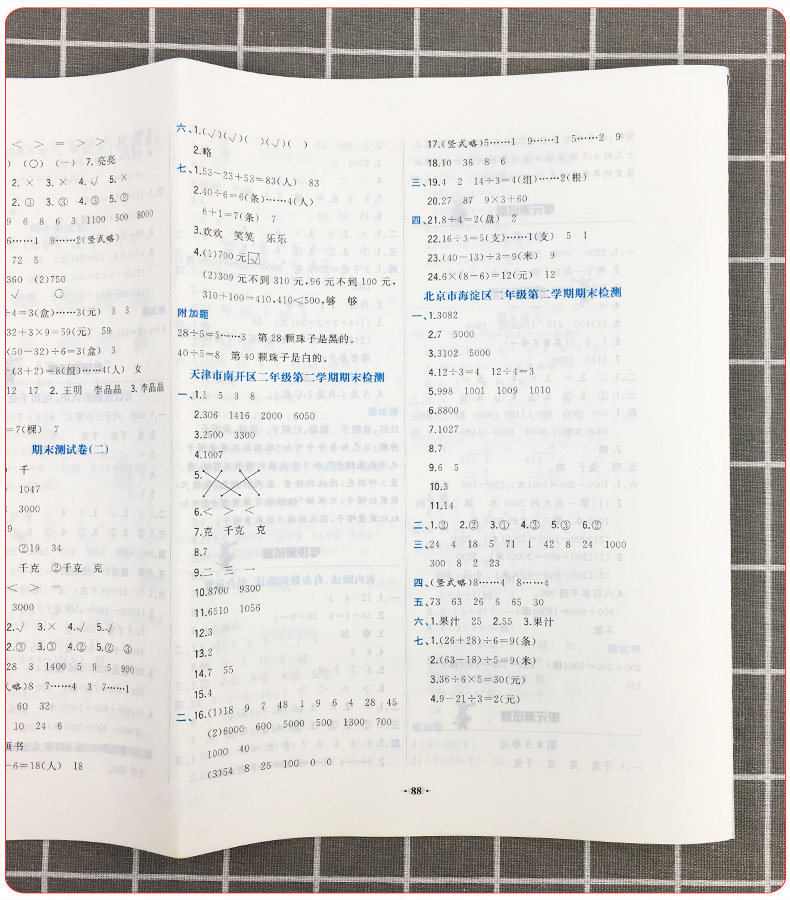 < > = > >
) (○) (一) 7.亮亮
2.× 3.× 4.√ 5.×
2.③ 3.③ 4.③ 5.②
9 6 8 6 3 1100 500 8000
6……1 9……2(竖式略)
72 5
360 (2)750
√ ○
÷4=3(盒)……3(元) 3 3
32+3×9=59(元) 59
(50-32)÷6=3(盒) 3
÷(3+2)=8(组)……4(人) 女
12 17 2.王明 李晶晶 3.李晶晶
=7(棵) 7
期末测试卷(二)
) 千
1047
3000
9
②19 34
千克 ②千克 克
< > =
3000
2.√ 3.× 4.√ 5.√
2.③ 3.③ 4.② 5.② ③
28 3 1400 5 9 5 900
式略)8 7……4 3 7……1
60 32
10 24 6
画书
-6=18(人) 18
六、1.(√)(√)( )(√)( )
2.略
七、1.53-23+53=83(人) 83
2.40÷6=6(条)……4(人)
6+1=7(条) 7
3.欢欢 笑笑 乐乐
4.(1)700元☑
(2)309元不到310元,96元不到100元,
310+100=410,410<500,够 够
附加题
28÷5=5……3 第28颗珠子是黑的。
40÷5=8 第40颗珠子是白的。
天津市南开区二年级第二学期期末检测
一、1.1 5 3 8
2.306 1416 2000 6050
3.2500 3300
4.1007
5.
6.< > <
7.克 千克 克
8.7
9.二 三 一
10.8700 9300
11.6510 1056
12.3
13.2
14.7 55
15.4
二、16.(1)18 9 7 48 1 9 6 4 28 45
(2)6000 600 5000 500 1300 700
1000 40
(3)54 8 25 100 0 0
17.(竖式略)5……1 9……1 5……2 9
18.10 36 8 6
三、19.4 2 14÷3=4(组)……2(根)
20.27 87 9×3+60
四、21.8÷4=2(盘) 2
22.16÷3=5(支)……1(支) 5 1
23.(40-13)÷3=9(米) 9
24.6×(8-6)=12(元) 12
北京市海淀区二年级第二学期期末检测
一、1.3082
2.7 5000
3.3102 5000
4.12÷3=4 12÷4=3
5.998 1001 1009 1010
6.8800
7.1027
8.7
9.6 5
10.3
11.14
二、1.② 2.② 3.① 4.③ 5.③ 6.②
三、24 4 18 5 71 1 42 8 24 1000
300 8 2 23
四、(竖式略)8……4 8……4
五、73 63 26 6 65 30
六、1.果汁 25 2.55 3.果汁
七、1.(26+28)÷6=9(条)
2.(63-18)÷5=9(米)
3.36÷6×5=30(元)
4.9-21÷3=2(元)
·88·